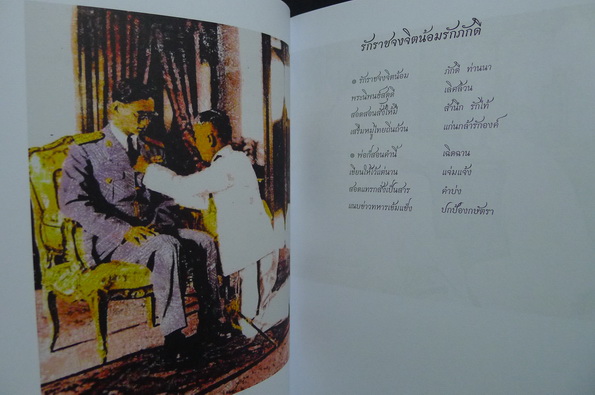 รักราชจงจิตน้อมรักภักดี
๑ รักราชจงจิตน้อม ภักดี ท่านนา
พระนิพนธ์สดุดี เลิศล้วน
สอดสอนสั่งให้มี สำนึก รักให้
เสริมหมู่ไทยถิ่นถ้วน แก่นกล้ารักองค์
๑ พ่อก็สอนคำนี้ เฉิดฉาน
เขียนให้ไว้แต่นาน แจ่มแจ้ง
สอดแทรกสั่งเป็นสาร คำบ่ง
แนบข่าวทหารเข้มแข็ง ปกป้องกษัตรา